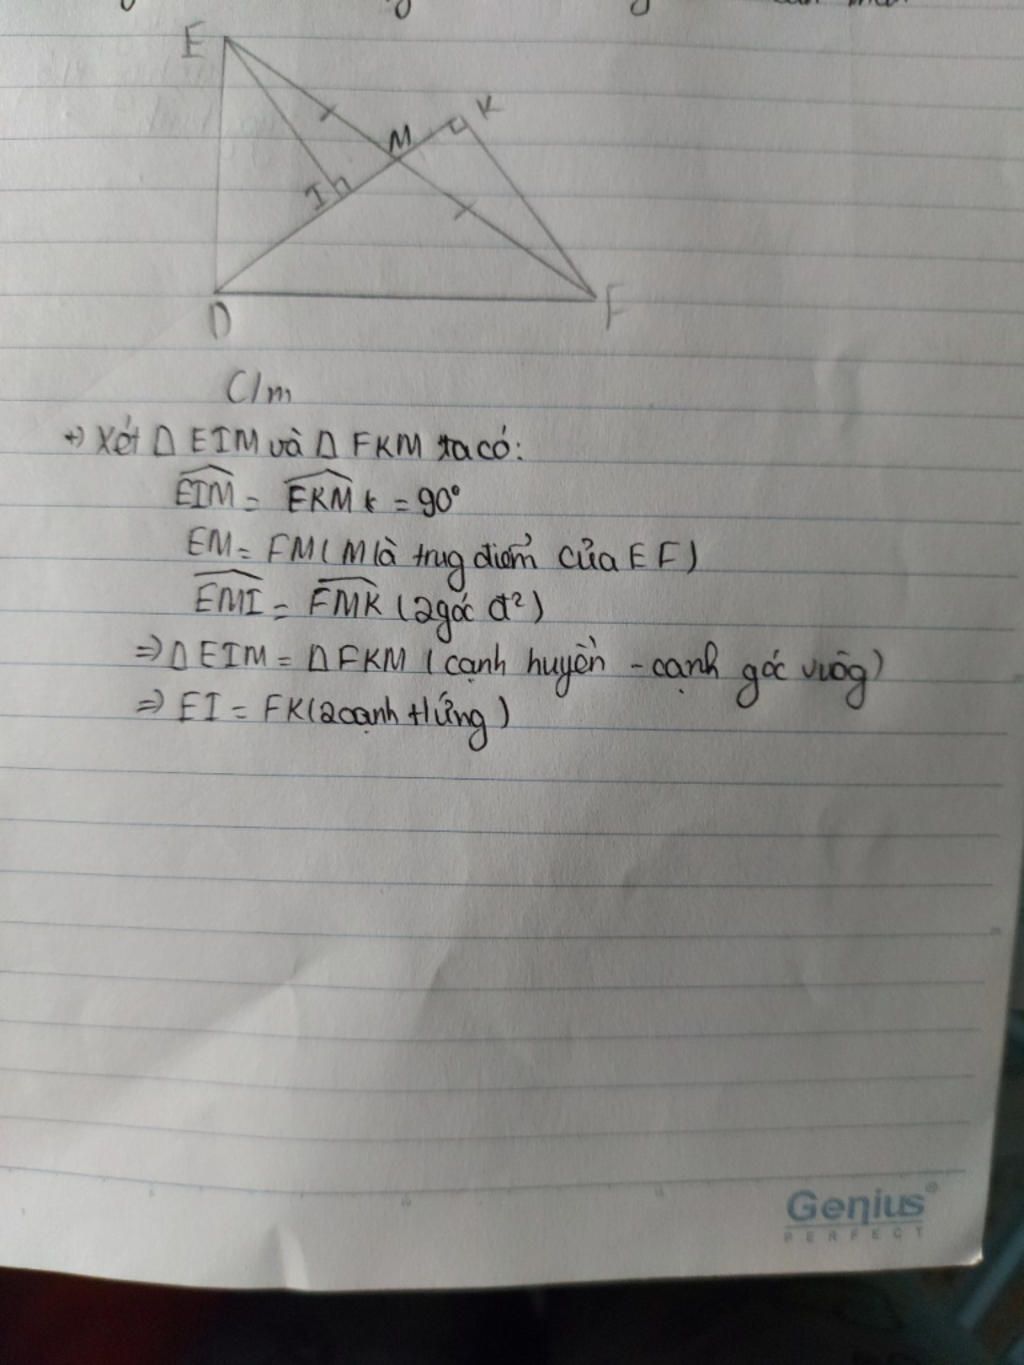 E
K
M
I
D
F
C/m
+) Xét Δ EIM và Δ FKM ta có:
EIM = FKM = 90°
EM = FM ( M là trug điểm của EF )
EMI = FMK ( 2 góc đ² )
=> Δ EIM = Δ FKM ( cạnh huyền - cạnh góc vuôg )
=> EI = FK ( 2 cạnh t/ứng )
Genius®
PERFECT